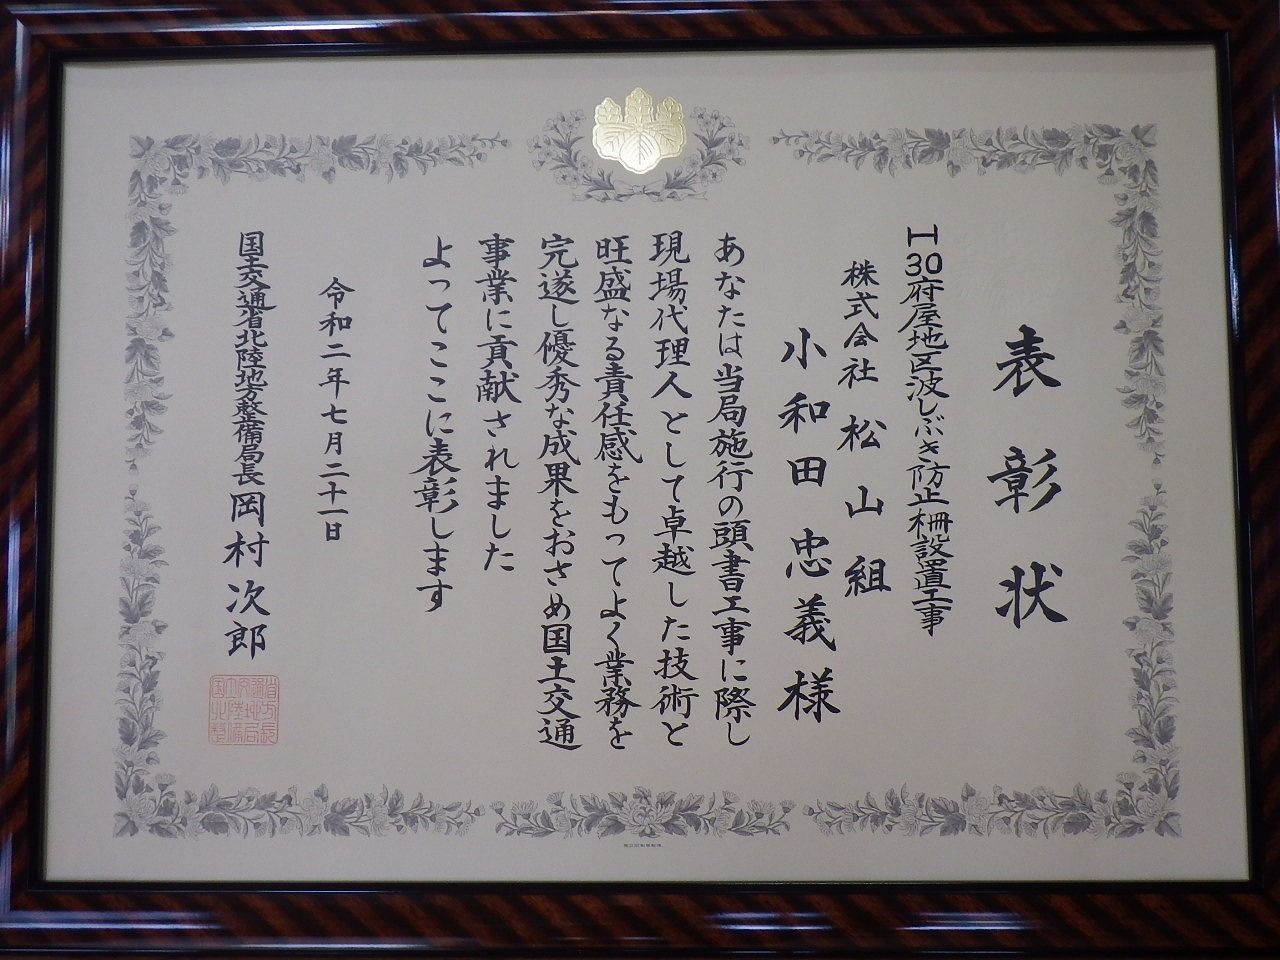 表彰状
H30府屋地区波しぶき防止柵設置工事
株式会社 松山組
小和田忠義様
あなたは当局施行の頭書工事に際し
現場代理人として卓越した技術と
旺盛なる責任感をもってよく業務を
完遂し優秀な成果をおさめ国土交通
事業に貢献されました
よってここに表彰します
令和二年七月二十一日
国土交通省北陸地方整備局長 岡村次郎